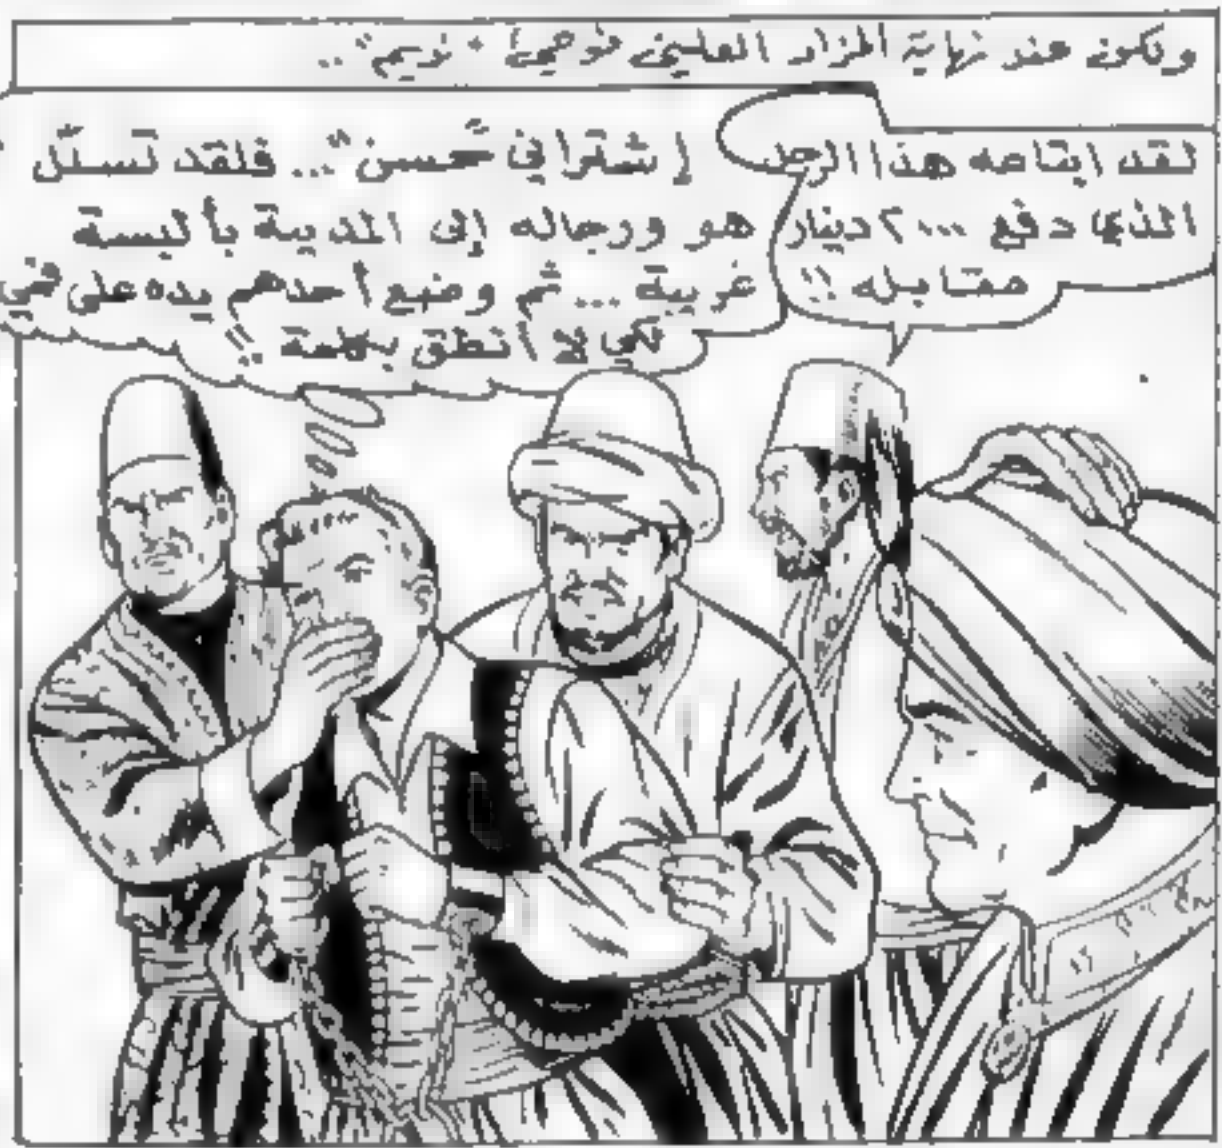 ويكون عند نهاية المزاد العلني فوجئ "نويم"..
لقد ابتاعه هذا الرجل
الذي دفع ٢٠٠٠ دينار
مقابله !!
إشتراني "حسن"... فلقد تسلّل
هو ورجاله إلى المدينة بألبسة
غريبة... ثم وضع أحدهم يده على فمي
لكي لا أنطق بكلمة !!